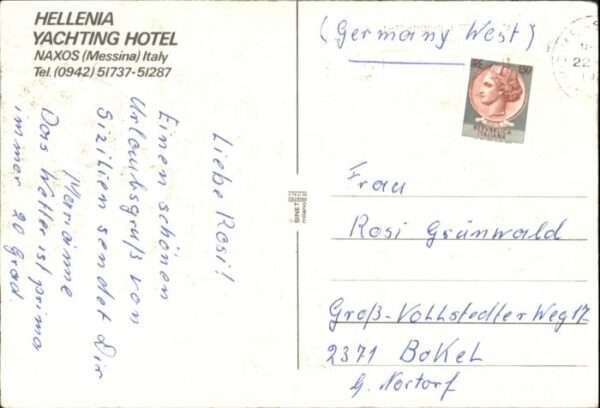 HELLENIA
YACHTING HOTEL
NAXOS (Messina) Italy
Tel. (0942) 51737-51287
Liebe Rosi!
Einen schönen
Urlaubsgruß von
Sizilien sendet Dir
Marianne
Das Wetter ist prima
immer 20 Grad
(Germany West)
LIRE 130
REPUBBLICA
ITALIANA
22
Frau
Rosi Grünwald
Groß-Vollstedter Weg 17
2371 Bokel
b. Nortorf